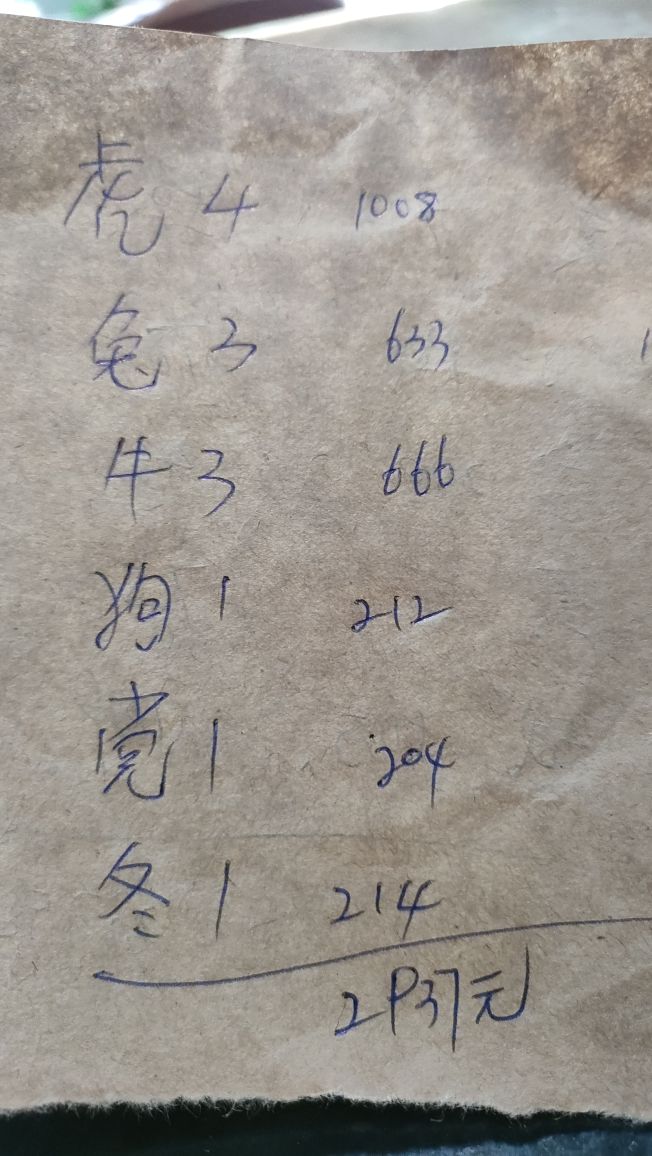 虎 4 1008
兔 3 633
牛 3 666
狗 1 212
党 1 204
冬 1 214
2937元